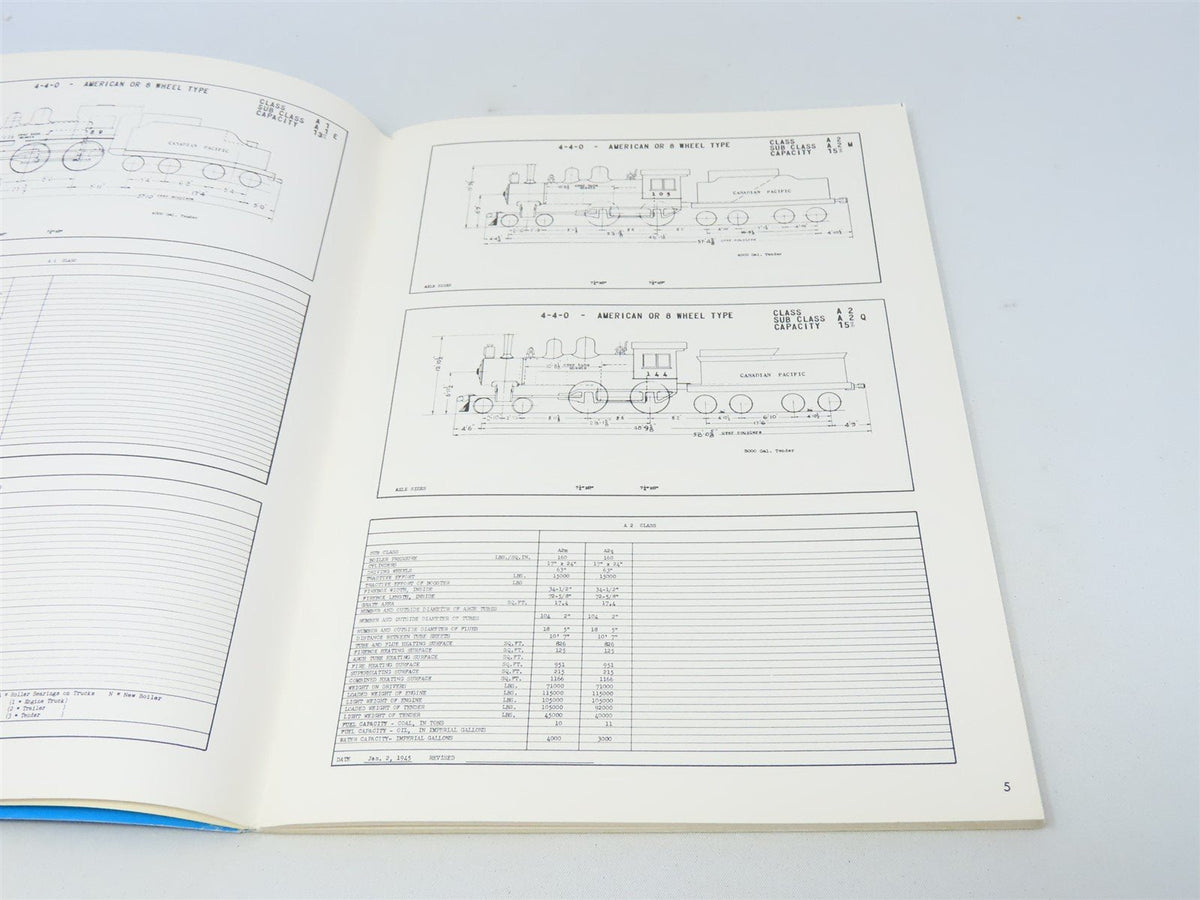 4-4-0 - AMERICAN OR 8 WHEEL TYPE
CLASS A 1
SUB CLASS A 1 E
CAPACITY 13%
CANADIAN PACIFIC
OVER COUPLERS
4000 Gal. Tender
A 1 CLASS
* Roller Bearings on Trucks N * New Boiler
(1 * Engine Truck)
(2 * Trailer )
(3 * Tender )
4-4-0 - AMERICAN OR 8 WHEEL TYPE
CLASS A 2
SUB CLASS A 2 M
CAPACITY 15%
105
CANADIAN PACIFIC
OVER COUPLERS
4000 Gal. Tender
AXLE SIZES
4-4-0 - AMERICAN OR 8 WHEEL TYPE
CLASS A 2
SUB CLASS A 2 Q
CAPACITY 15%
144
CANADIAN PACIFIC
4'6"
6'10"
17'6"
4'9"
OVER COUPLERS
3000 Gal. Tender
AXLE SIZES
A 2 CLASS
SUB CLASS A2m A2q
BOILER PRESSURE LBS./SQ.IN. 160 160
CYLINDERS 17" x 24" 17" x 24"
DRIVING WHEELS 63" 63"
TRACTIVE EFFORT LBS. 15000 15000
TRACTIVE EFFORT OF BOOSTER LBS
FIREBOX WIDTH, INSIDE 34-1/2" 34-1/2"
FIREBOX LENGTH, INSIDE 72-5/8" 72-5/8"
GRATE AREA SQ.FT. 17.4 17.4
NUMBER AND OUTSIDE DIAMETER OF ARCH TUBES
NUMBER AND OUTSIDE DIAMETER OF TUBES 104 2" 104 2"
NUMBER AND OUTSIDE DIAMETER OF FLUES 18 5" 18 5"
DISTANCE BETWEEN TUBE SHEETS 10' 7" 10' 7"
TUBE AND FLUE HEATING SURFACE SQ.FT. 826 826
FIREBOX HEATING SURFACE SQ.FT. 125 125
ARCH TUBE HEATING SURFACE SQ.FT.
FIRE HEATING SURFACE SQ.FT. 951 951
SUPERHEATING SURFACE SQ.FT. 215 215
COMBINED HEATING SURFACE SQ.FT. 1166 1166
WEIGHT ON DRIVERS LBS. 71000 71000
LOADED WEIGHT OF ENGINE LBS. 115000 115000
LIGHT WEIGHT OF ENGINE LBS. 105000 105000
LOADED WEIGHT OF TENDER LBS. 105000 92000
LIGHT WEIGHT OF TENDER LBS. 45000 40000
FUEL CAPACITY - COAL, IN TONS 10 11
FUEL CAPACITY - OIL, IN IMPERIAL GALLONS
WATER CAPACITY- IMPERIAL GALLONS 4000 3000
DATE Jan. 2, 1945 REVISED
5